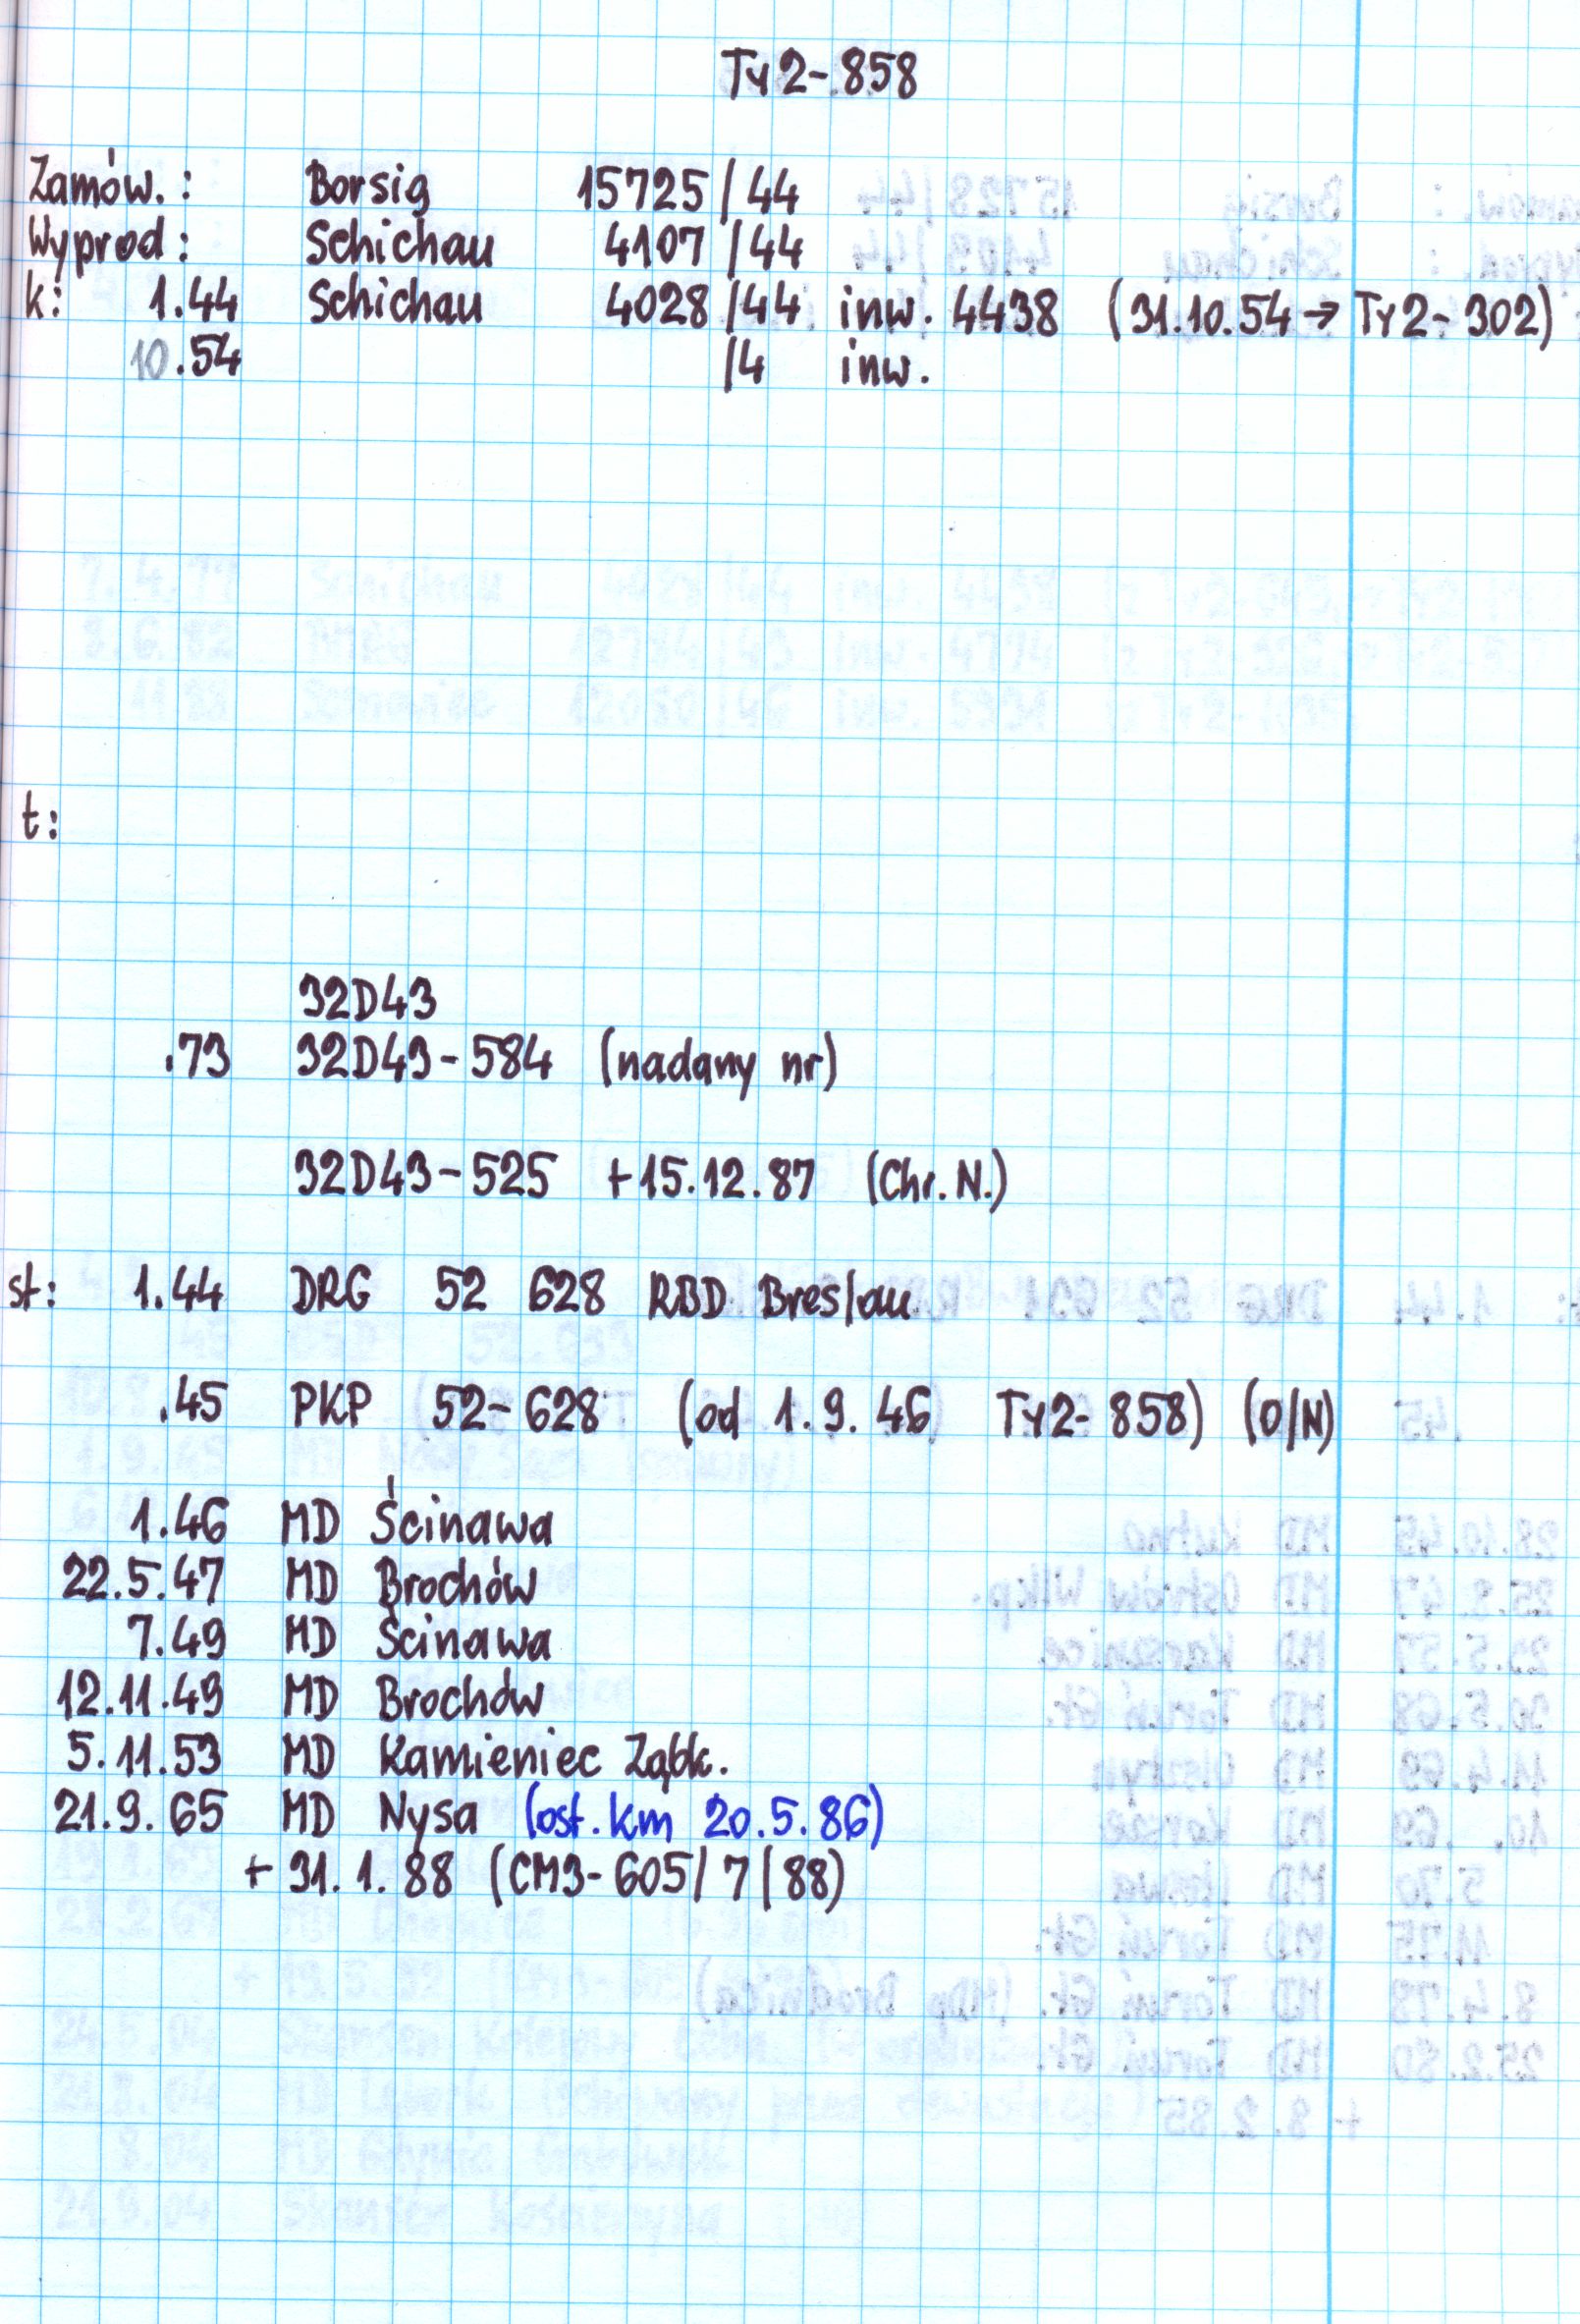 Ty2-858
Zamów.: Borsig 15725/44
Wyprod: Schichau 4107/44
k: 1.44 Schichau 4028/44 inw. 4438 (31.10.54 → Ty2-302)
10.54 /4 inw.
t:
32D43
.73 32D43-584 (nadany nr)
32D43-525 +15.12.87 (Chr. N.)
st: 1.44 DRG 52 628 RBD Breslau
.45 PKP 52-628 (od 1.9.46 Ty2-858) (O/N)
1.46 MD Ścinawa
22.5.47 MD Brochów
7.49 MD Ścinawa
12.11.49 MD Brochów
5.11.53 MD Kamieniec Ząbk.
21.9.65 MD Nysa (ost. km 20.5.86)
+ 31.1.88 (CM3-605/7/88)